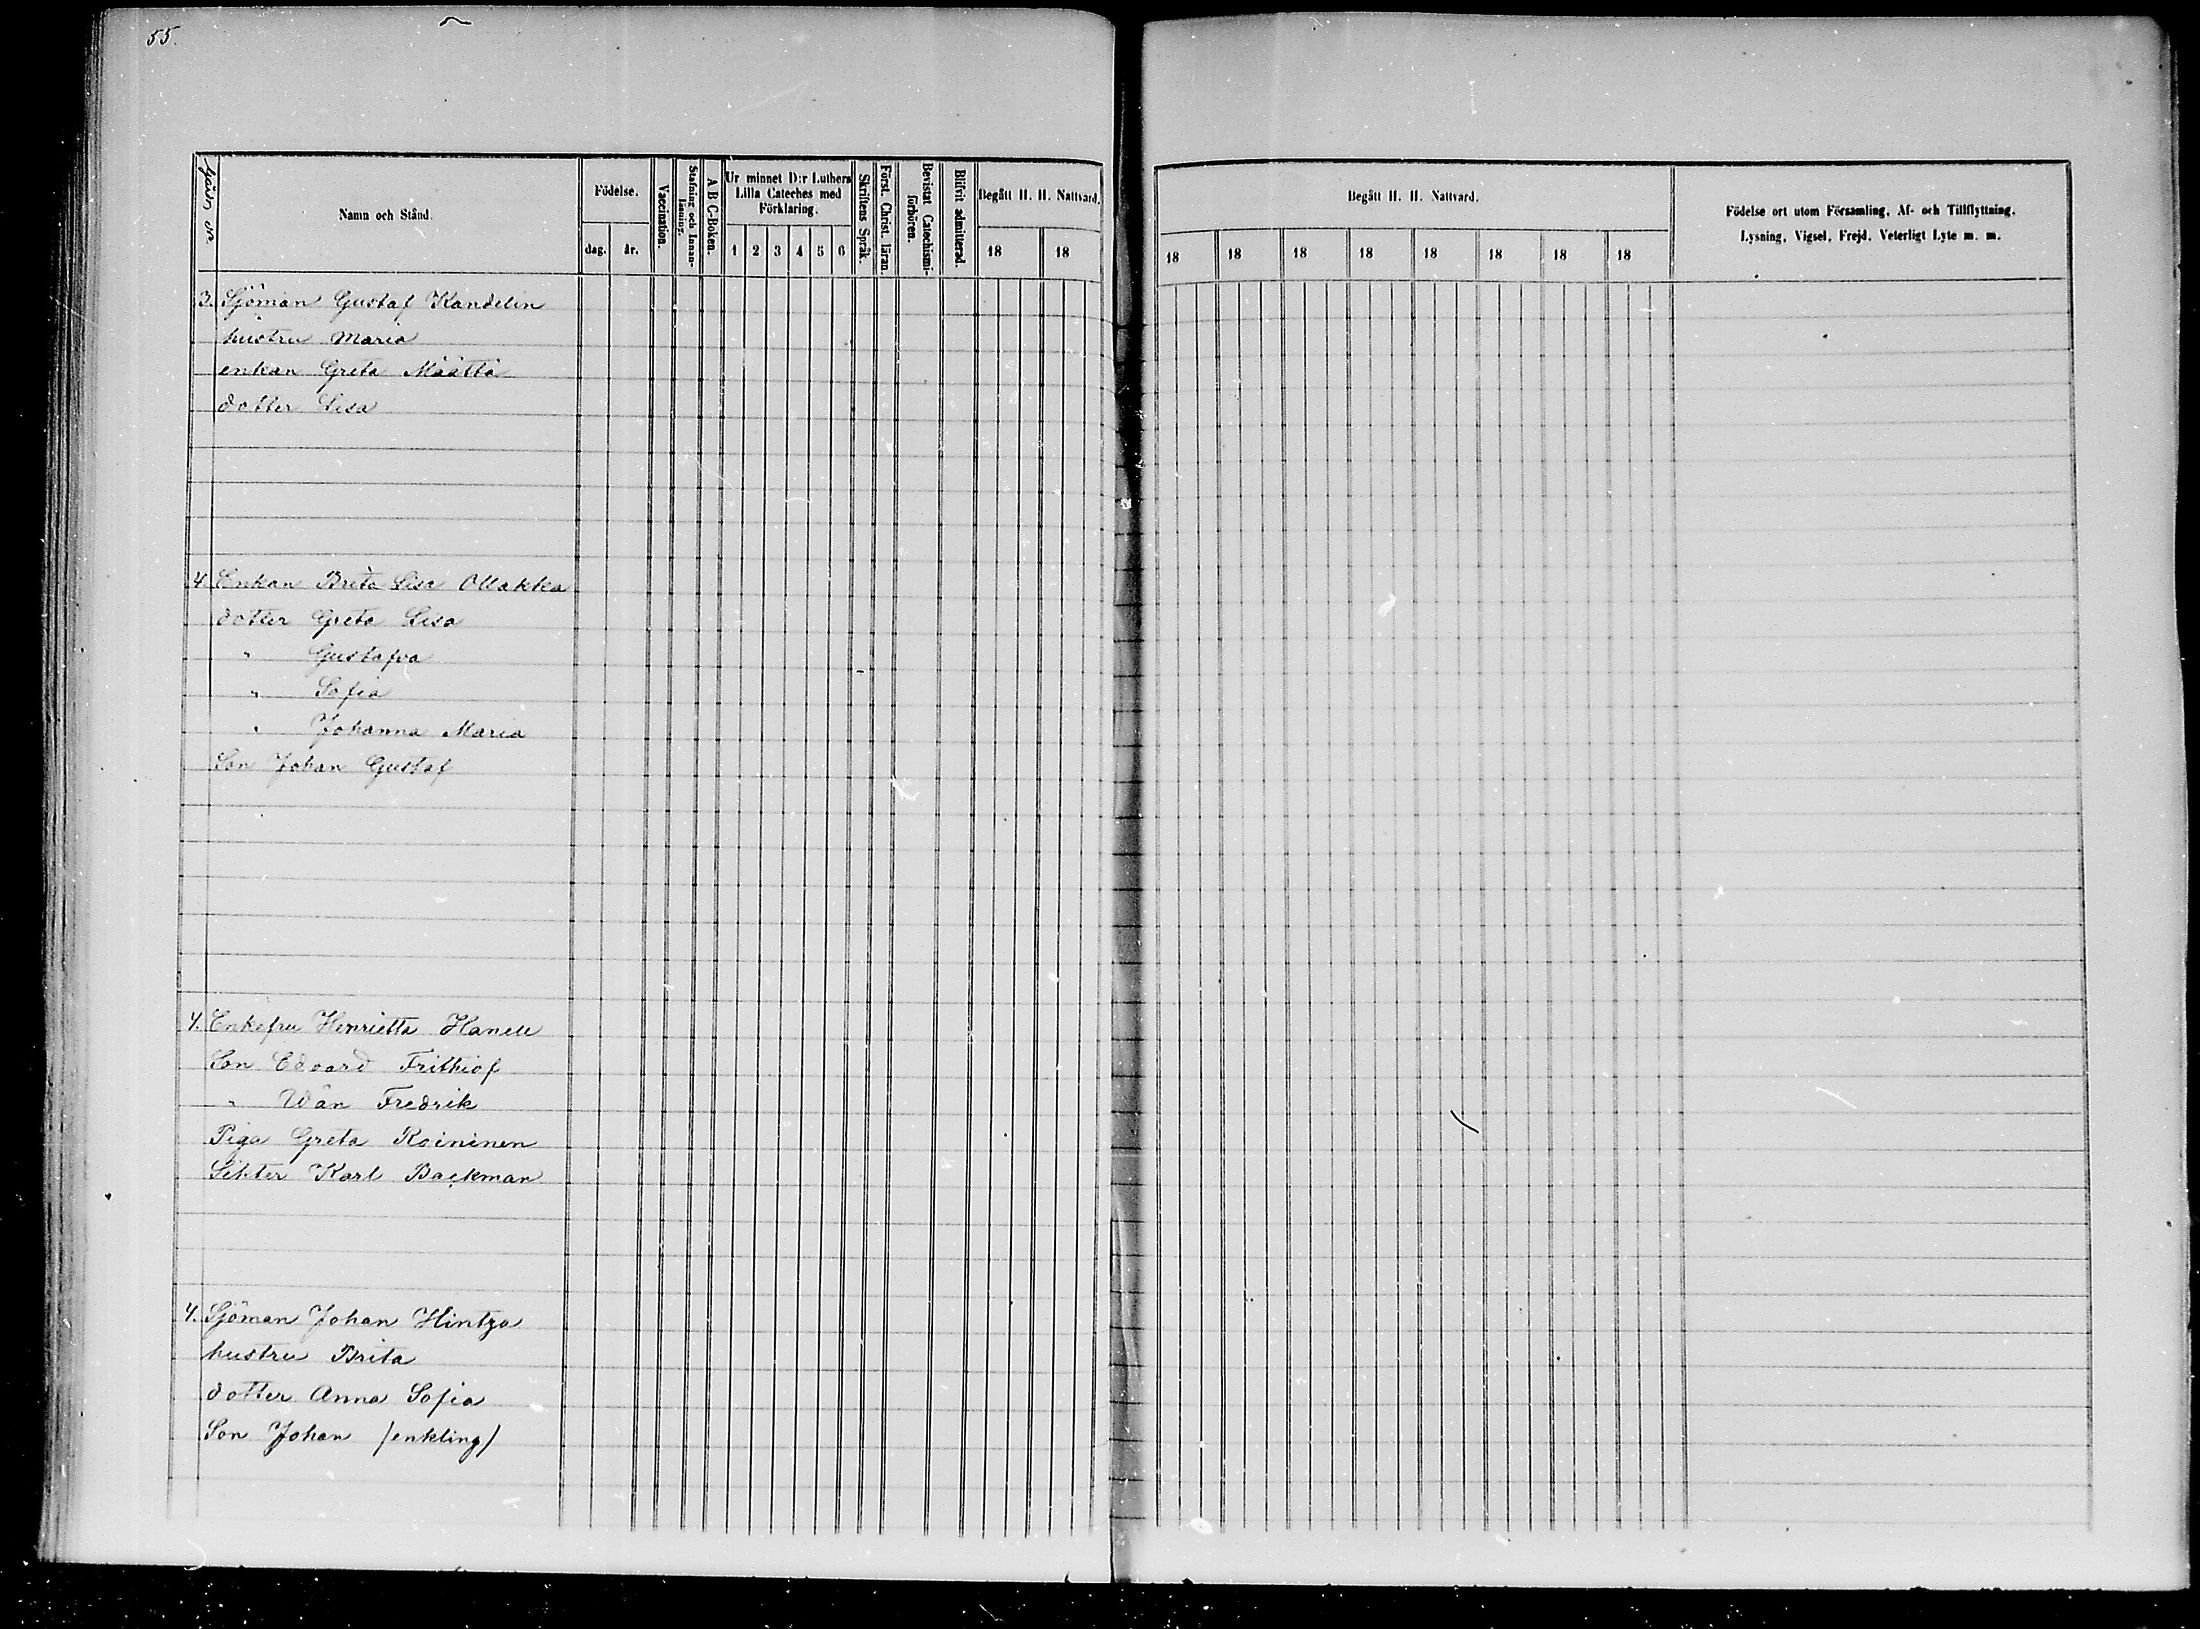 55.
Gård, No.
Namn och Stånd.
Födelse.
dag. år.
Vaccination.
Stafning och Innan-
läsning.
A B C-Boken.
Ur minnet D:r Luthers
Lilla Cateches med
Förklaring.
1 2 3 4 5 6
Skriftens Språk.
Först. Christ. läran.
Bevistat Catechismi-
förhören.
Blifvit admitterad.
Begått H. H. Nattvard.
18 18
Begått H. H. Nattvard.
18 18 18 18 18 18 18 18
Födelse ort utom Församling, Af- och Tillflyttning,
Lysning, Vigsel, Frejd, Veterligt Lyte m. m.
3. Sjöman Gustaf Kandelin
hustru Maria
enkan Greta Määttä
dotter Lisa
4. Enkan Brita Lisa Ollakka
dotter Greta Lisa
" Gustafva
" Sofia
" Johanna Maria
Son Johan Gustaf
4. Enkefru Henrietta Hanell
Son Edvard Frithiof
" Wän Fredrik
Piga Greta Roininen
Karl Backman
4. Sjöman Johan Hintza
hustru Brita
dotter Anna Sofia
Son Johan /enkling/